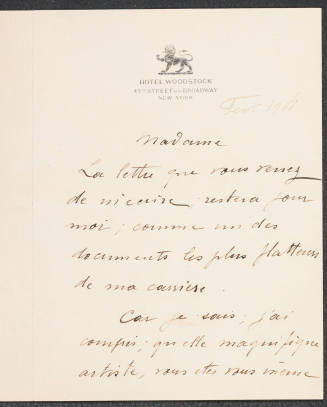 HOTEL WOODSTOCK
43RD STREET near BROADWAY
NEW YORK
Madame
La lettre que vous venez
de m'ecrire restera pour
moi, comme un des
documents les plus flatteurs
de ma carriere.
Car je sais, j'ai
compris, quelle magnifique
artiste, vous etes vous même